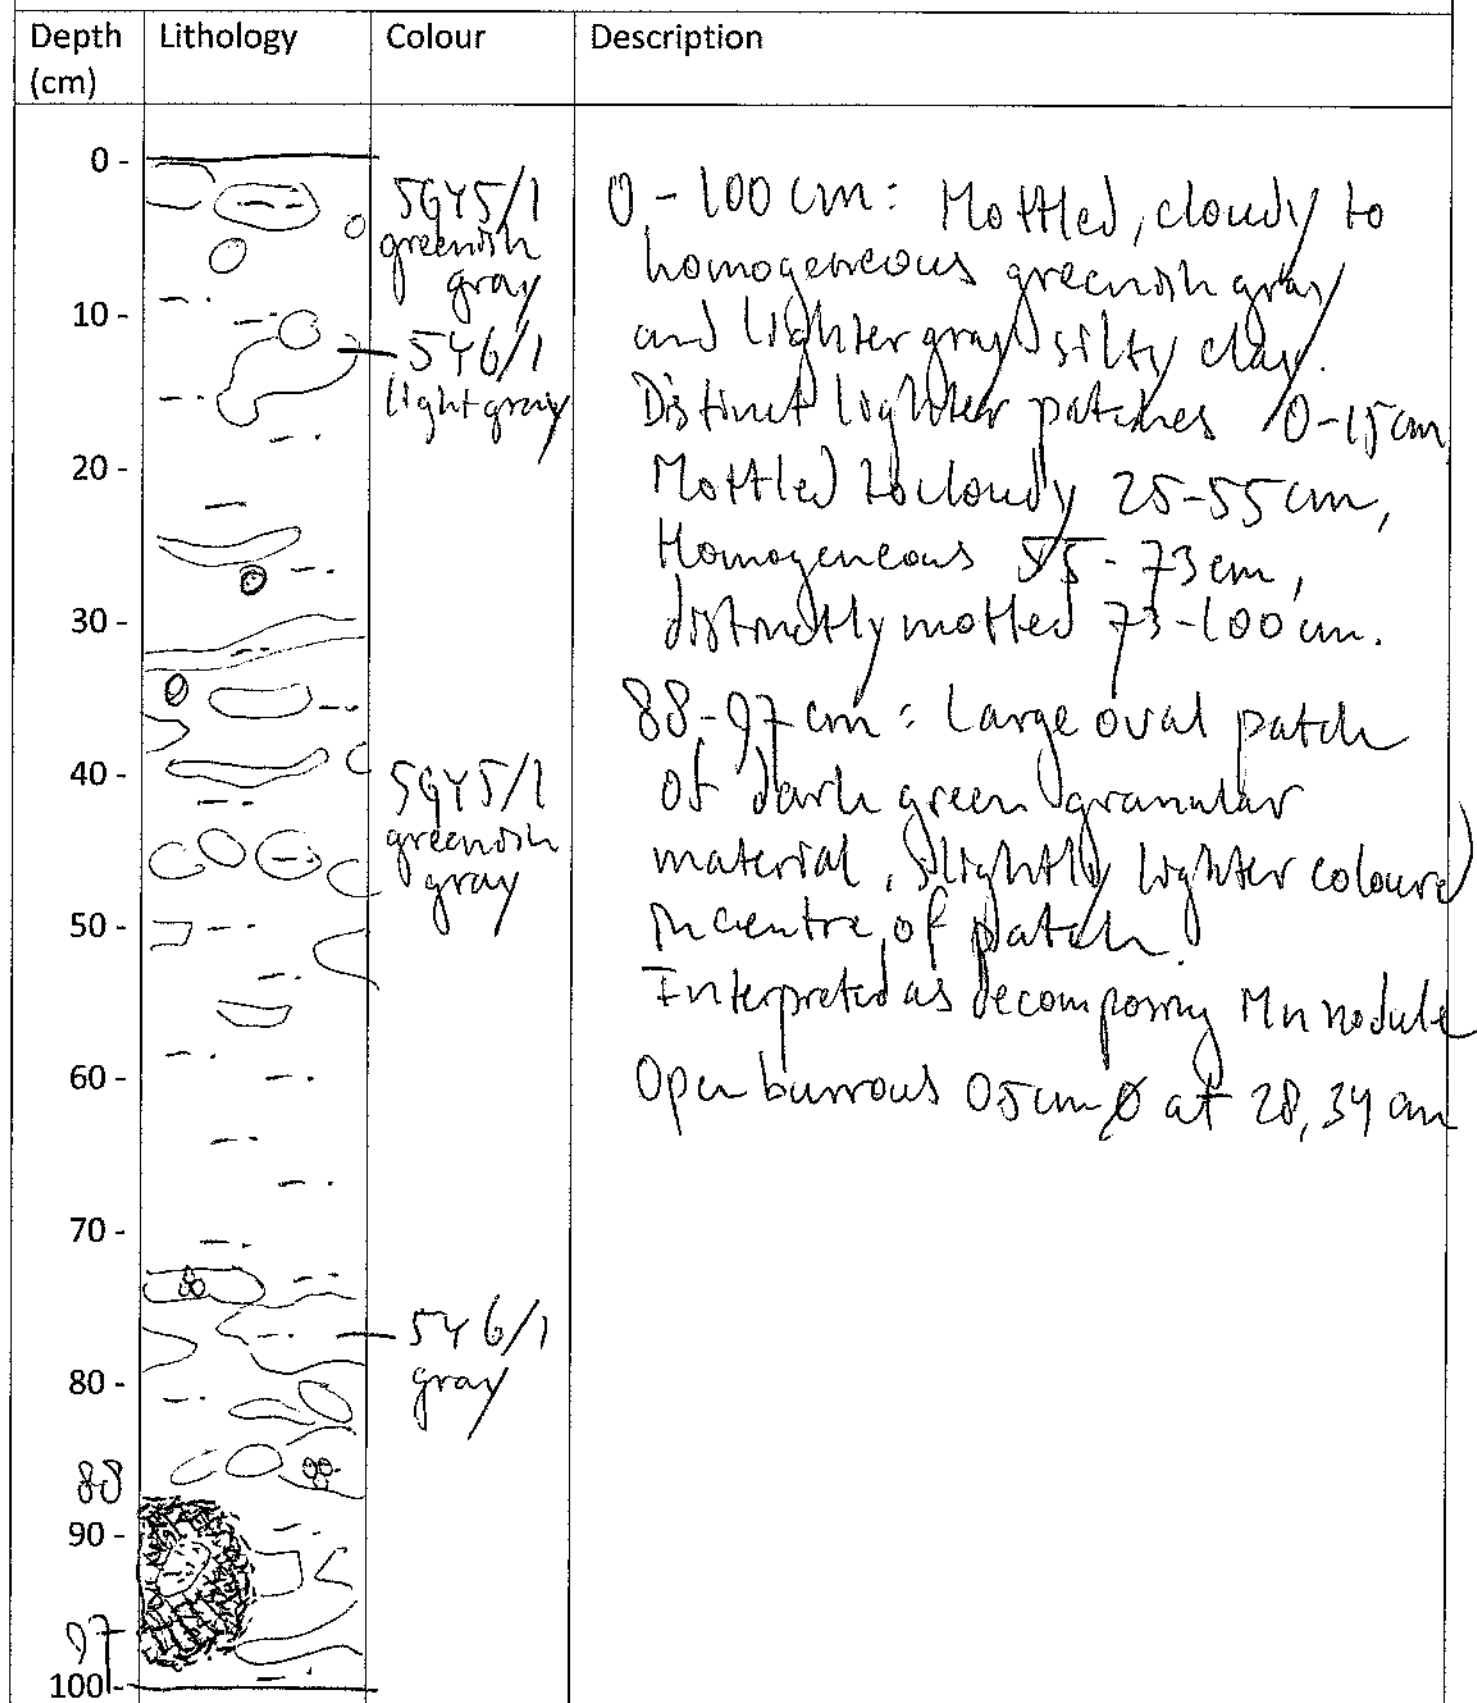 Depth Lithology Colour Description
(cm)
0 -
10 -
20 -
30 -
40 -
50 -
60 -
70 -
80 -
88
90 -
97
100 -
5GY5/1
greenish
gray
5Y6/1
light gray
5GY5/1
greenish
gray
5Y6/1
gray
0-100 cm: Mottled, cloudy to
homogeneous greenish gray
and lighter gray silty clay.
Distinct lighter patches 0-15cm
Mottled to cloudy 25-55cm,
Homogeneous 55-73cm,
distinctly mottled 73-100cm.
88-97cm: Large oval patch
of dark green granular
material, slightly lighter coloured
in centre of patch.
Interpreted as decomposing Mn nodule
Open burrows 05cm Ø at 28, 34 cm